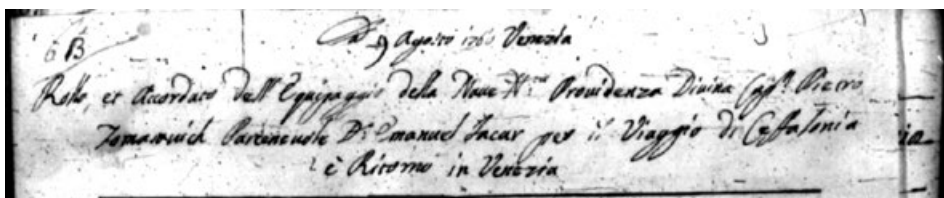 6 B
Ad 9 Agosto 1760 Venezia
Rollo, et Accordato dell'Equipaggio della Nave N.ta Providenza Divina Cap.n Pietro
Tomasovich Partenevole D.n Emanuel Jacur per il Viaggio di Ceffalonia
è Ritorno in Venezia